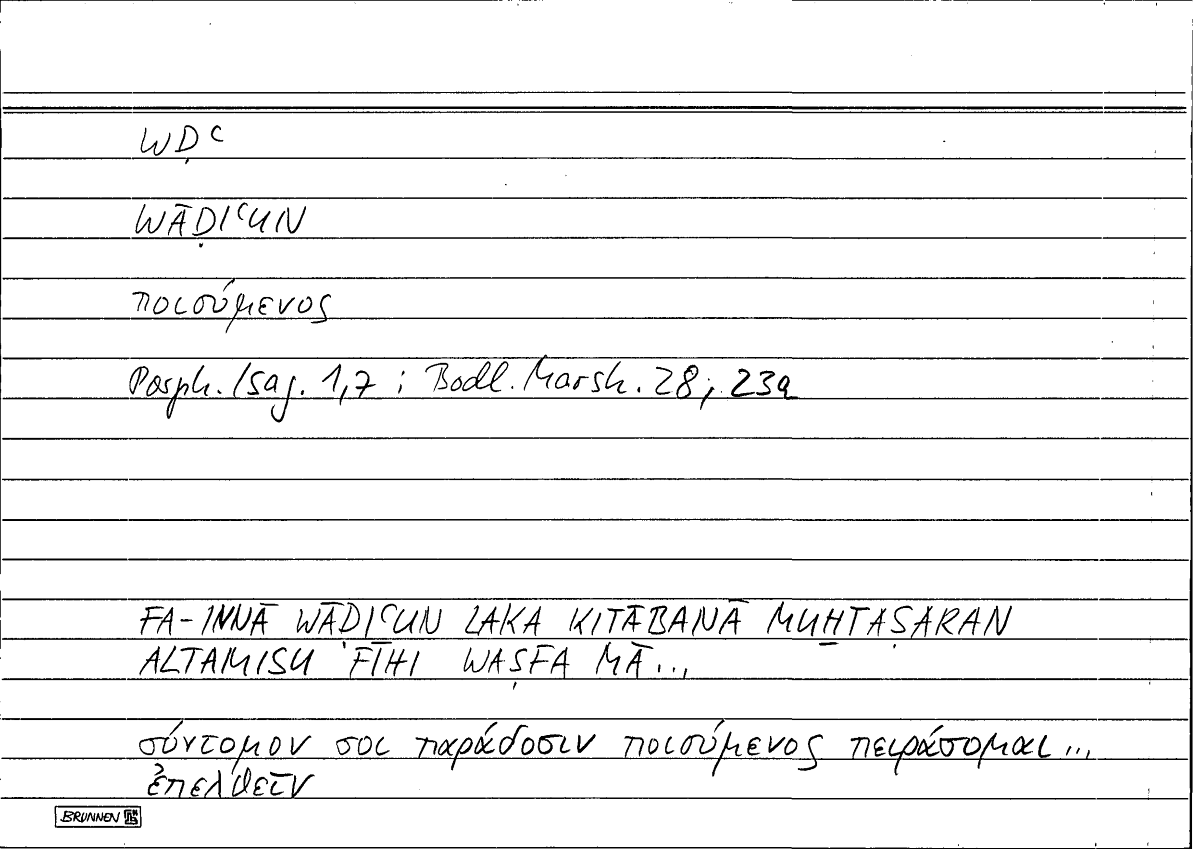 WḌʿ
WĀḌIʿUN
ποιούμενος
Porph. Isag. 1,7 ; Bodl. Marsh. 28; 23a
FA-INNĀ WĀḌIʿUN LAKA KITĀBANĀ MUH̱TAṢARAN
ALTAMISU FĪHI WAṢFA MĀ...
σύντομόν σοι παράδοσιν ποιούμενος πειράσομαι ...
ἐπελθεῖν
BRUNNEN